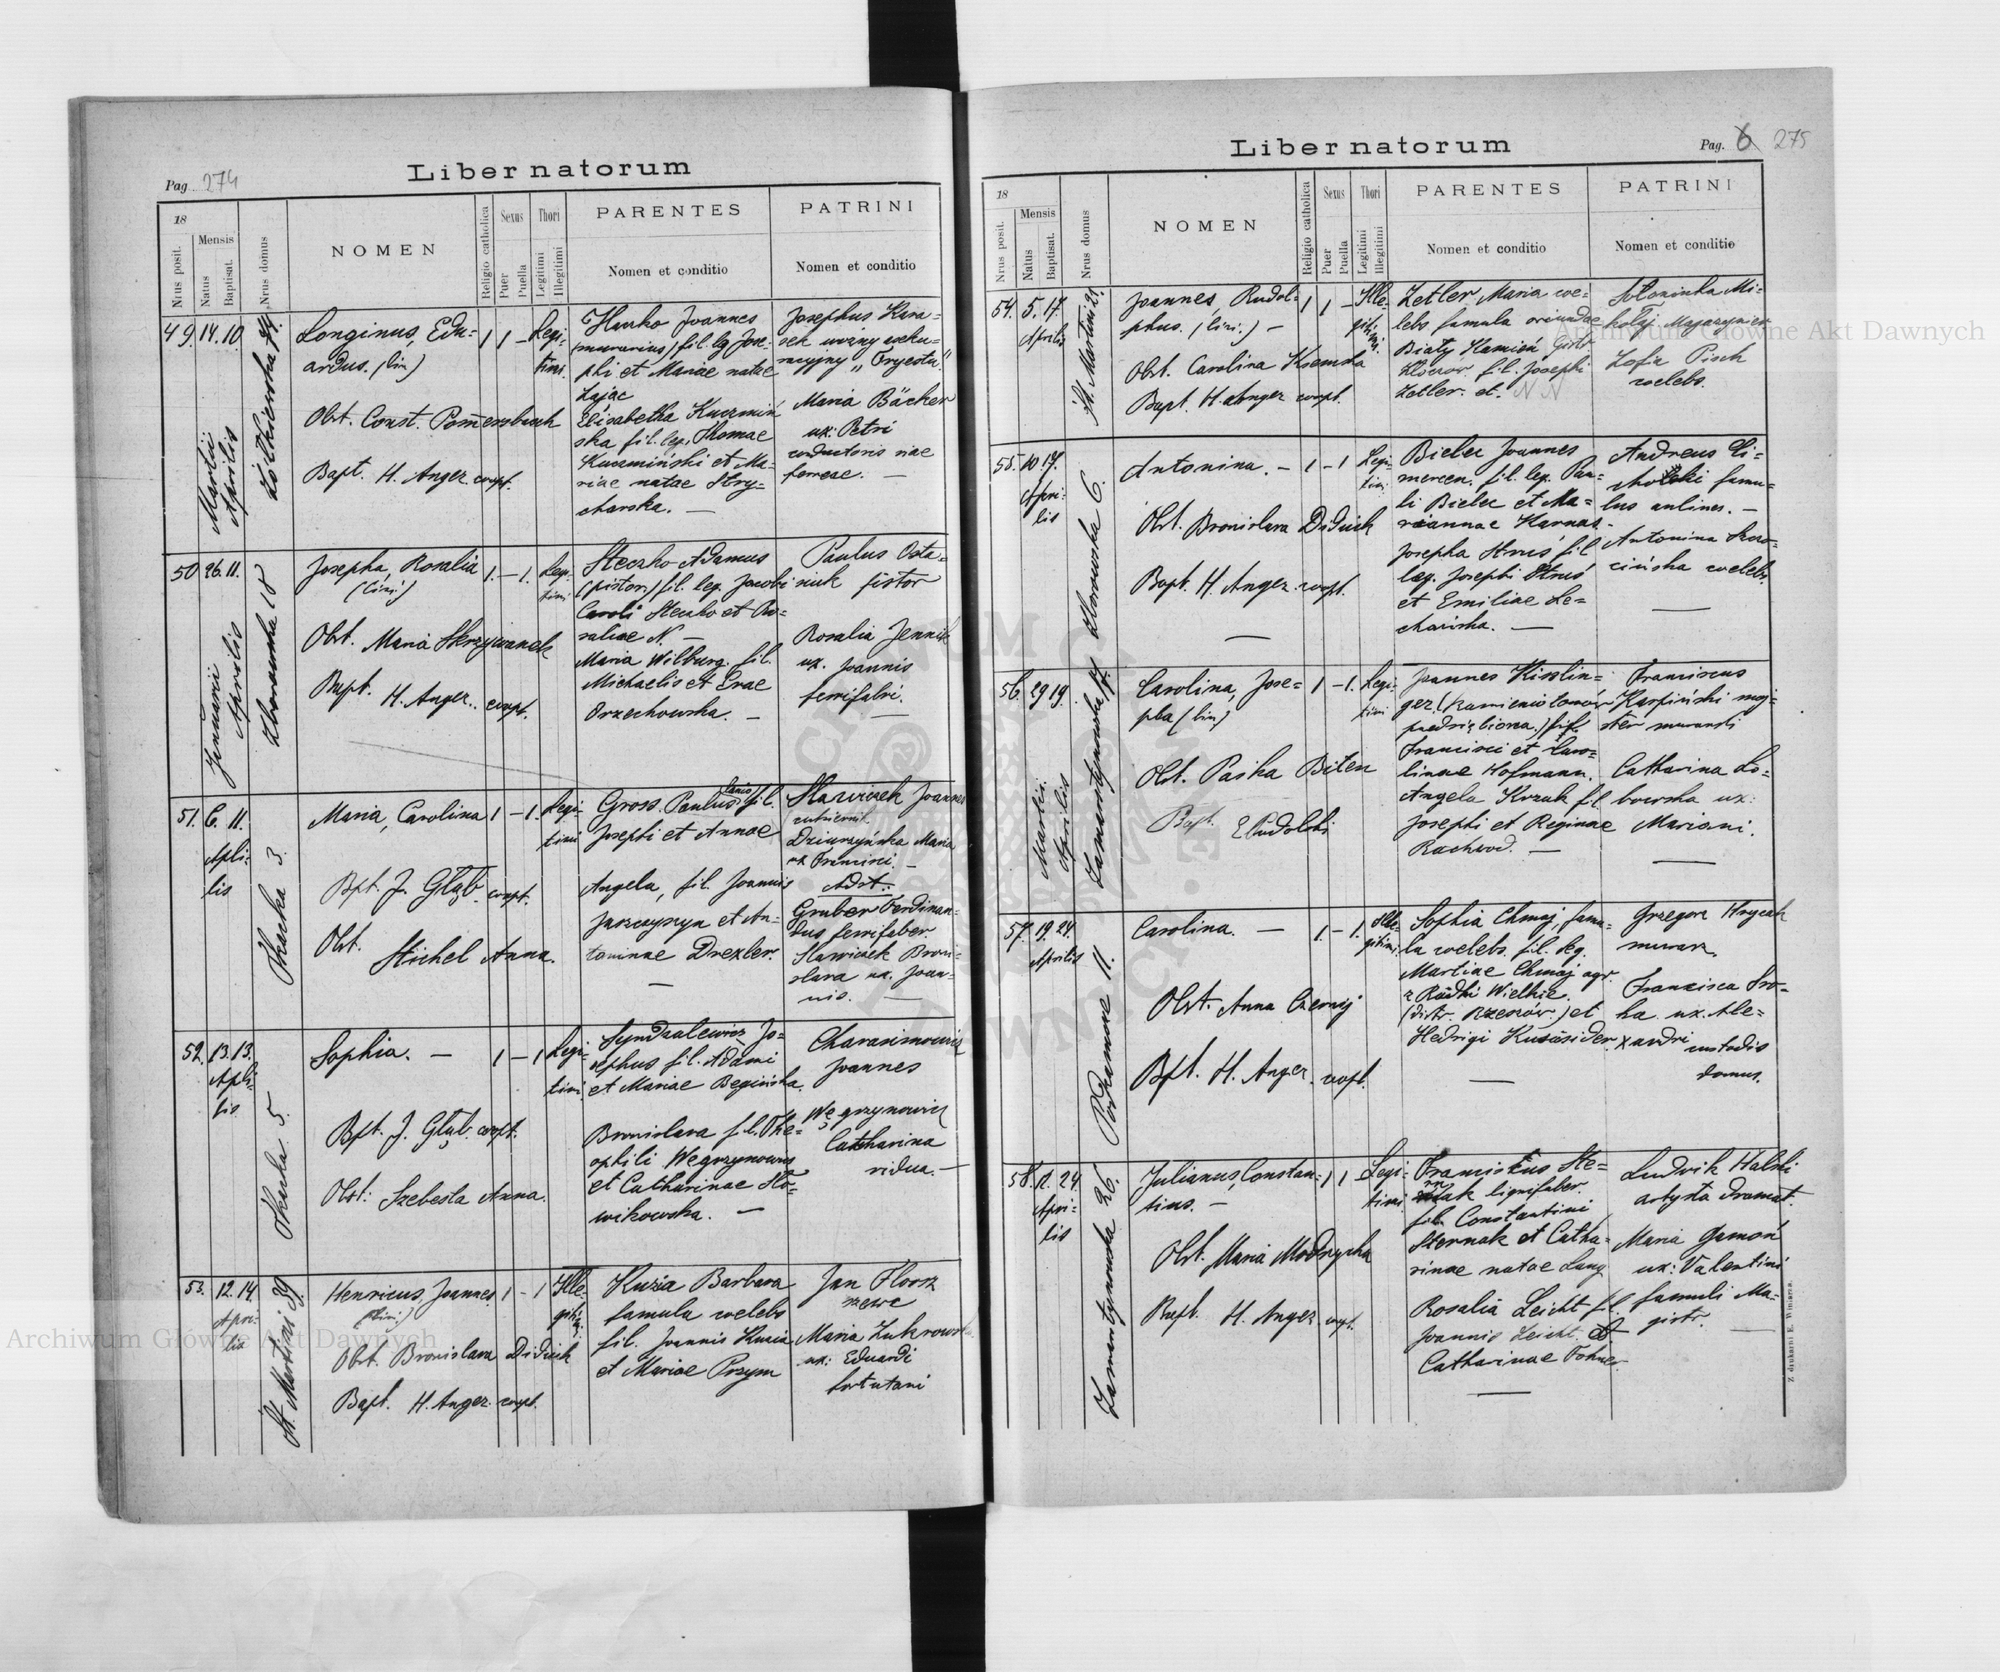 Liber natorum
Pag. 274
18
Nrus posit.
Mensis
Natus
Baptisat.
Nrus domus
NOMEN
Religio catholica
Sexus
Puer
Puella
Thori
Legitimi
Illegitimi
PARENTES
Nomen et conditio
PATRINI
Nomen et conditio
49. 14. 10.
Martii
Aprilis
Żółkiewska
Longinus, Edu-
ardus. (bin)
Obst. Const. Pom̄ersbach
Bapt. H. Anger coopt.
1 1 - Legi-
timi.
Hauko Joannes
(murarius) fil. lg. Jose-
phi et Mariae natae
Zając
Elisabetha Kuczmiń
ska fil. leg. Thomae
Kuczmiński et Ma-
riae natae Stry-
charska. —
Josephus Kara-
sek woźny
"Tryestu"
Maria Bäcker
ux: Petri
conductoris viae
ferreae. —
50 26. 11.
Januarii
Aprilis
Zborowska 18
Josepha, Rosalia
(bini)
Obst. Maria Skrzywanek
Bapt. H. Anger. coopt.
1. - 1. Legi-
timi
Steczko Adamus
(pistor) fil. leg. Jacobi
Caroli Steczko et Ro-
saliae N. —
Maria Wilburg. fil.
Michaelis et Evae
Orzechowska. —
Paulus Osta-
niuk pistor
Rosalia Jennik
ux. Joannis
ferrifabri.
51. 6. 11.
Apri-
lis
Okacka 3.
Maria, Carolina
Bpt. J. Głąb. coopt.
Obst. Stichel Anna.
1 - 1. Legi-
timi
Gross Paulus fil.
Josephi et Annae
Angela, fil. Joannis
Juszczyszyn et An-
toninae Drexler.
Slawiczek Joannes
Dziurzyńska Maria
ux Francisci. —
Adst.
Gruber Ferdinan-
dus ferrifaber.
Slawiczek Broni-
slava ux. Joan-
nis. —
52. 13. 13.
Apri-
lis
5.
Sophia. —
Bpt. J. Głąb. coopt.
Obst: Szebesta Anna.
1 - 1 Legi-
timi
Syndzulewicz Jo-
sephus fil. Adami
et Mariae Begińska.
Bronislava fil. The-
ophili Węgrzynowicz
et Catharinae Sło-
wikowska. —
Charasimowicz
Joannes
Węgrzynowicz
Catharina
vidua. —
53. 12. 14.
Apri-
lis
St. Martini 39.
Henricus, Joannes
(bini)
Obst. Bronislava Diduik
Bapt. H. Anger. coopt.
1 - 1 Ille-
gitimi.
Kuzia Barbara
famula coelebs
fil. Joannis Kuzia
et Mariae Przym
Jan Florsz
szewc
Maria Zukrowska
ux: Eduardi
Liber natorum
Pag. 6 275
18
Nrus posit.
Mensis
Natus
Baptisat.
Nrus domus
NOMEN
Religio catholica
Sexus
Puer
Puella
Thori
Legitimi
Illegitimi
PARENTES
Nomen et conditio
PATRINI
Nomen et conditio
54. 5. 17.
Aprilis
St. Martini 25.
Joannes, Rudol-
phus. (bini.) —
Obst. Carolina Ksemska
Bapt. H. Anger coopt.
1 1 - Ille-
gitimi.
Zetler Maria coe-
lebs famula oriunda
Biały Kamień distr.
Złoczów fil. Josephi
Zetler. et. N N
Sołoninka Mi-
kołaj Magazynier
Zofia Pisch
coelebs.
55. 10. 17.
Apri-
lis
Zborowska 6.
Antonina. —
Obst. Bronislava Diduik
Bapt. H. Anger coopt.
1 - 1 Legi-
timi
Bielec Joannes
mercen. fil. leg. Pau-
li Bielec et Ma-
riannae Karnas.
Josepha Struś fil
leg. Josephi Struś
et Emiliae Le-
charska. —
Andreas Li-
famu-
lus aulines. —
Antonina Skro-
cińska coelebs.
56. 29 19.
Martii.
Aprilis
Zamarstynowska
Carolina, Jose-
pha (bini)
Obst. Paśka Biten
Bapt. E Rudolski
1 - 1. Legi-
timi
Joannes Kisslin-
ger. (kamieniołomów
przedsiębiorca.) fil.
Francisci et Caro-
linae Hofmann.
Angela Krzak fil.
Josephi et Reginae
Rachwod. —
Franciscus
Karpiński maj-
ster murarski
Catharina Lo-
bowska ux:
Mariani.
57. 19. 24.
Aprilis
Podzamcze 11.
Carolina. —
Obst. Anna Czernij
Bpt. H. Anger. coopt.
1. - 1. Ille-
gitimi.
Sophia Chmaj, famu-
la coelebs. fil. leg.
Martiae Chmaj agr.
z Rudki Wielkie.
(distr. Rzeszów.) et
Hedvigi Kusasider
Grzegorz Hrycak
murarz.
Francisca Sro-
ka. ux. Ale-
xandri custodis
domus.
58. 12. 24.
Apri-
lis
Zamarstynowska 26.
Julianus, Constan-
tius. —
Obst. Maria Modrycka
Bapt. H. Anger. coopt.
1 1 Legi-
timi
Franciscus Ste-
rnak lignifaber.
fil. Constantini
Sternak et Catha-
rinae natae Lang
Rosalia Leicht fil.
Joannis Leicht. et
Catharinae Fohner.
Ludwik Halski
artysta dramat.
Maria Gamoń
ux: Valentini
famuli Ma-
gistr. —
Z drukarni E. Winiarza.
Archiwum Główne Akt Dawnych
Archiwum Główne Akt Dawnych